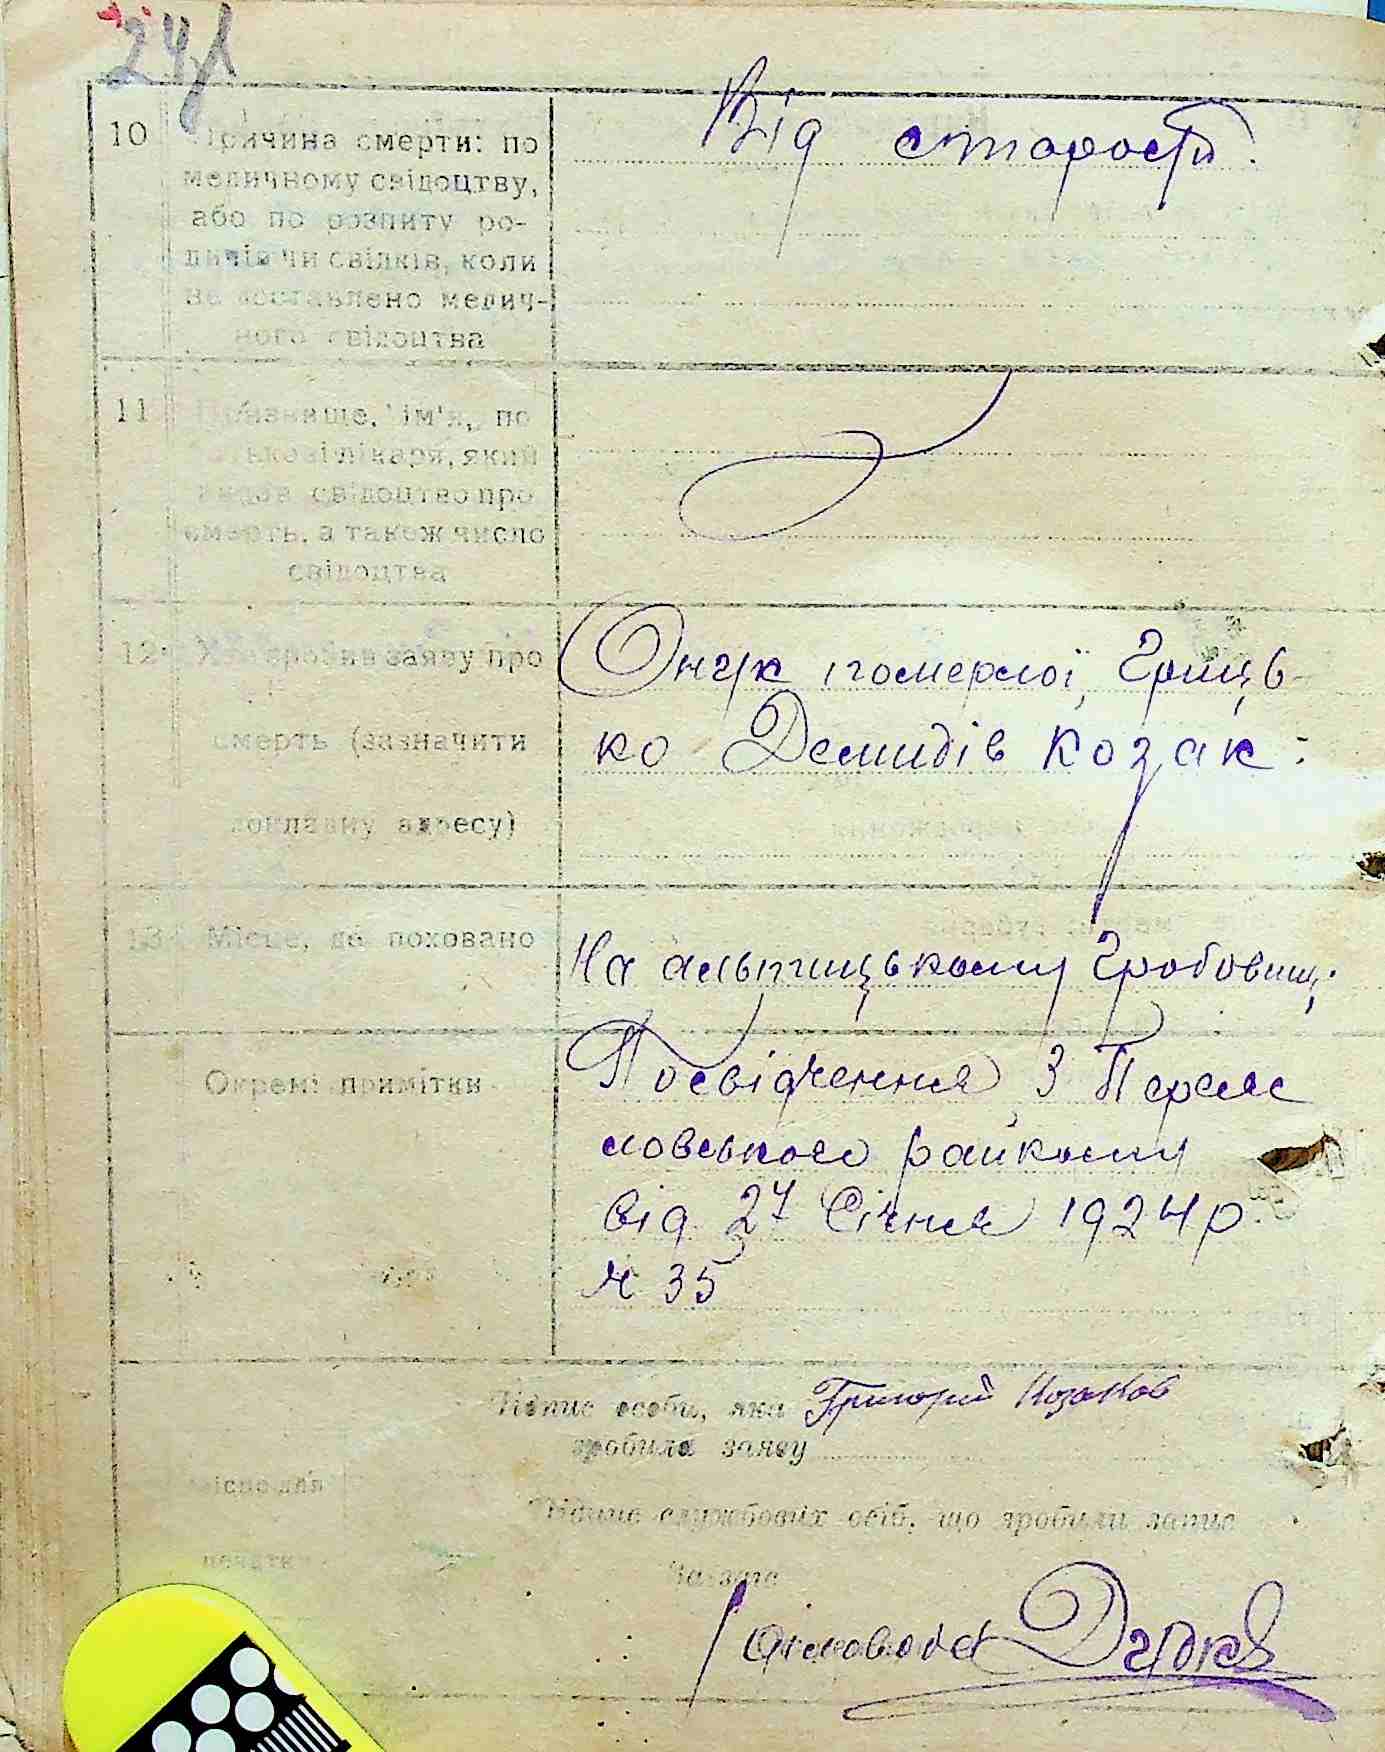 10 Причина смерти: по
медичному свідоцтву,
або по розпиту ро-
дичів чи свідків, коли
не доставлено медич-
ного свідоцтва
Від старости.
11 Прізвище, ім'я, по
батькові лікаря, який
видав свідоцтво про
смерть, а також число
свідоцтва
12 Хто зробив заяву про
смерть (зазначити
докладну адресу)
Онук померлої, Гриць-
ко Демидів Козак.
13 Місце, де поховано
На альтицькому Гробовищ.
Окремі примітки
Посвідчення З Переяс
ловського райкому
від 27 Січня 1924 р.
№ 35
Підпис особи, яка Григорій Козаков
зробила заяву
Підпис службових осіб, що зробили запис
Завзагс
Діловода